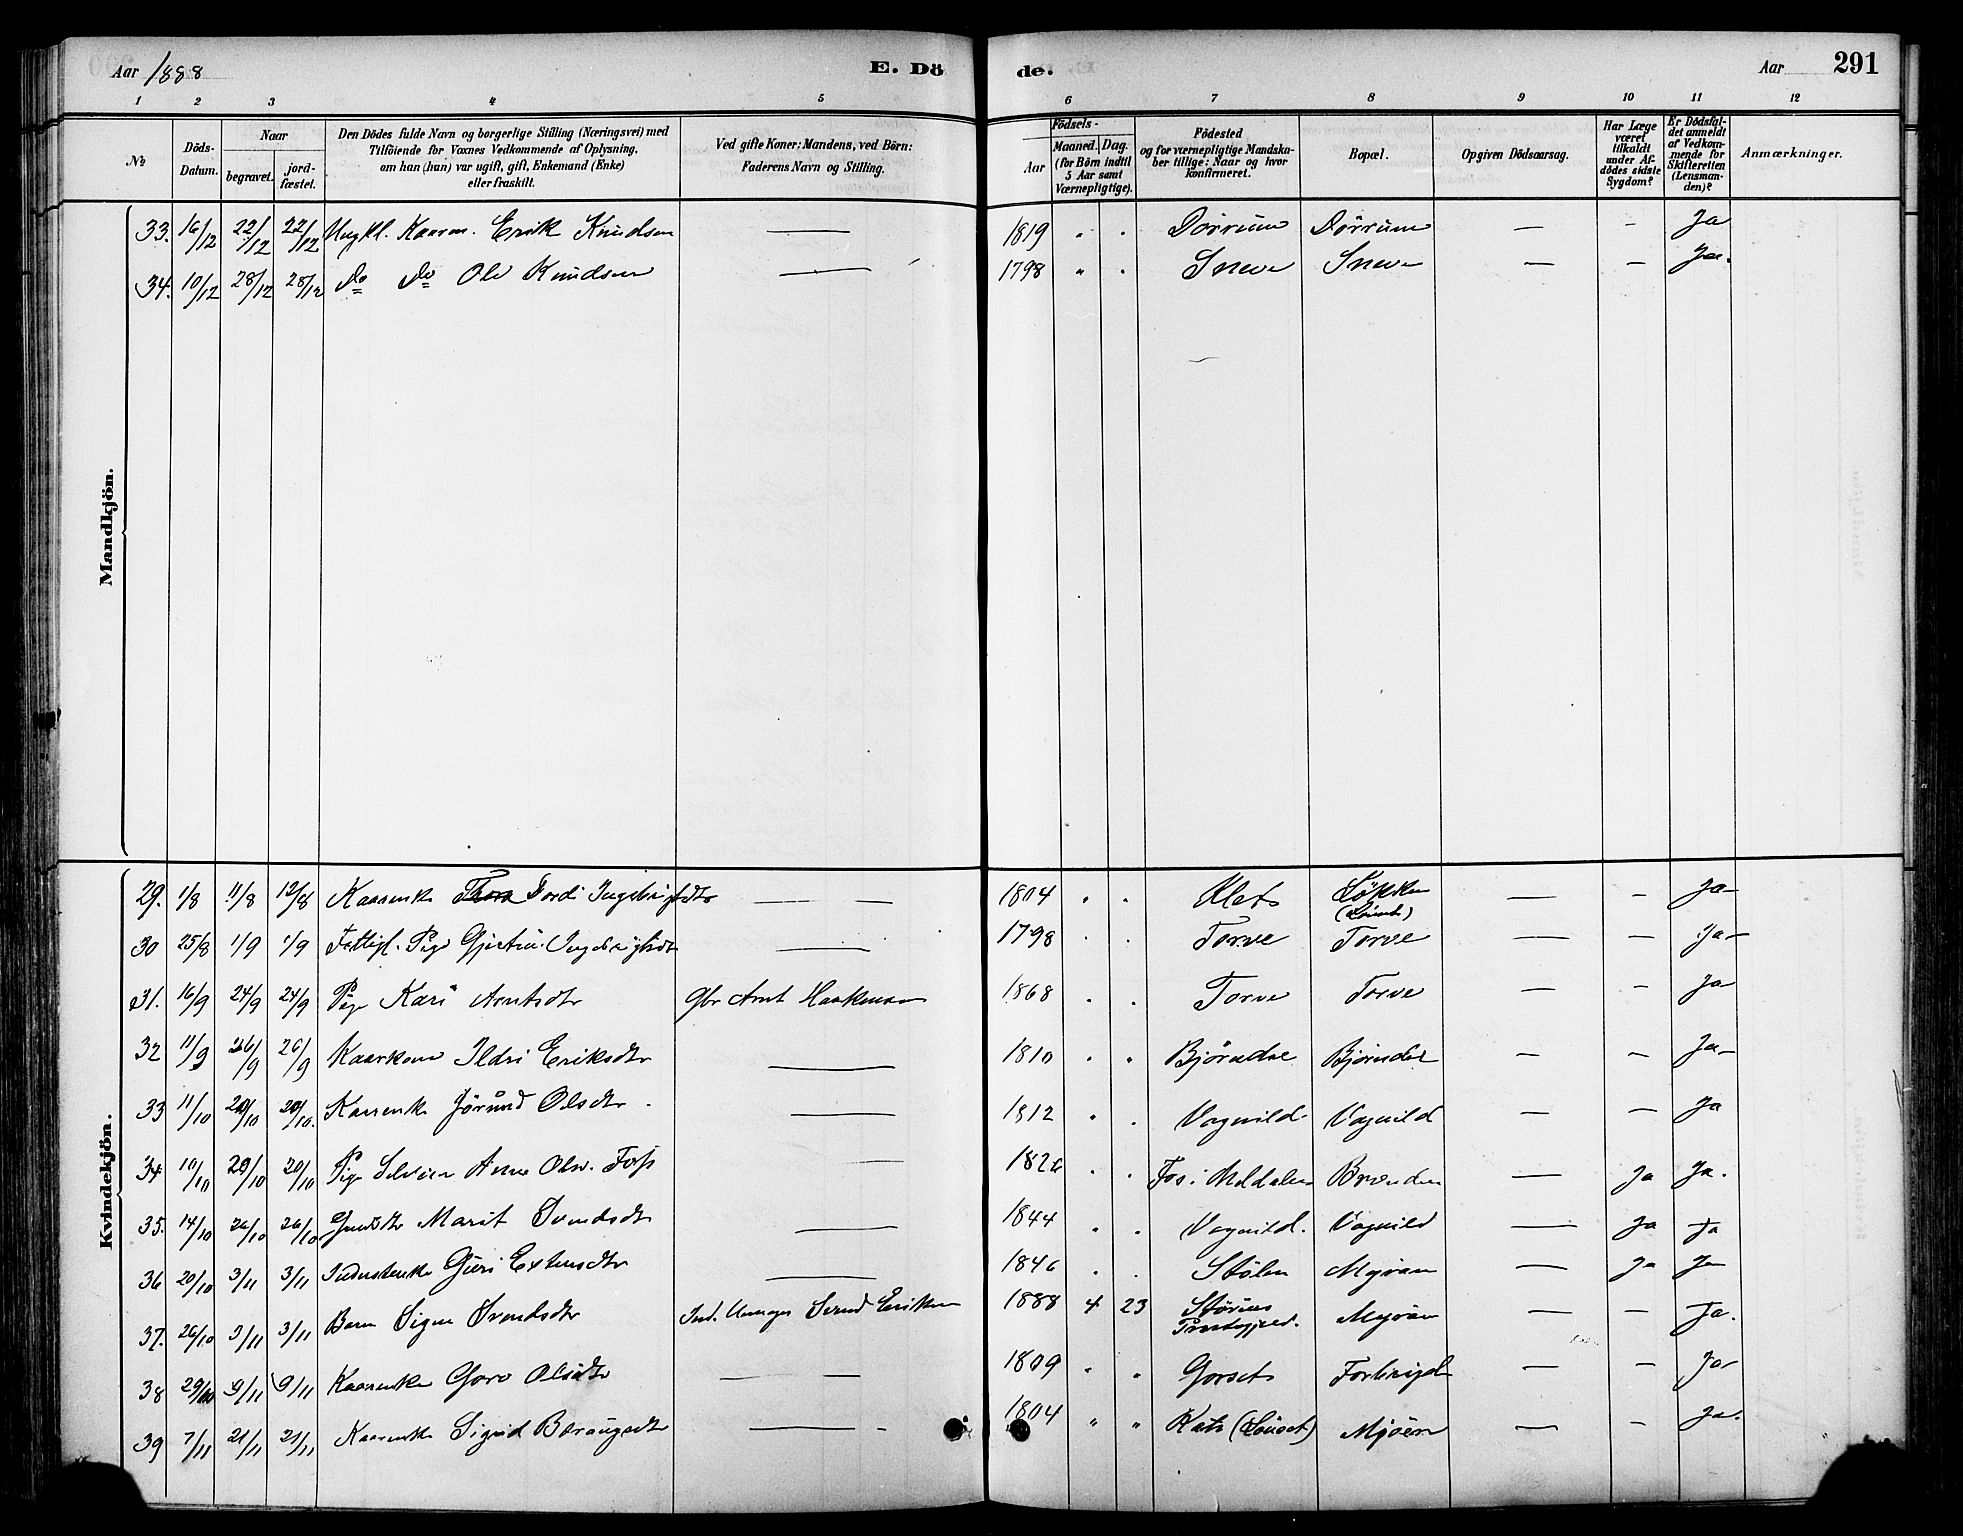 Aar 1888 E. Dö de. Aar 291
1 2 3 4 5 6 7 8 9 10 11 12
№
Döds-Datum.
Naar
begravet.
jord-fæstet.
Den Dödes fulde Navn og borgerlige Stilling (Næringsvei) med
Tilföiende for Voxnes Vedkommende af Oplysning,
om han (hun) var ugift, gift, Enkemand (Enke)
eller fraskilt.
Ved gifte Koner: Mandens, ved Börn:
Faderens Navn og Stilling.
Födsels-
Aar
Maaned. Dag.
(for Börn indtil
5 Aar samt
Værnepligtige).
Födested
og for værnepligtige Mandska-
ber tillige: Naar og hvor
konfirmeret.
Bopæl.
Opgiven Dödsaarsag.
Har Læge
været
tilkaldt
under Af-
dödes sidste
Sygdom?
Er Dödsfal-
det anmeldt
af Vedkom-
mende for
Skifteretten
(Lensman-
den)?
Anmærkninger.
Mandkjön.
33. 16/12 22/12 22/12 Ungkl. Kaarm. Erik Knudsen — 1819 " " Dörrum Dörrum — – Ja
34. 10/12 28/12 28/12 do do Ole Knudsen — 1798 " " Sneve Sneve — — Ja.
Kvindekjön.
29. 1/8 11/8 12/8 Kaarenke Dordi Ingebrigtsdtr — — 1804 " " Klets Lökken — – Ja
30 25/8 1/9 1/9 Fattigl. Pige Ingebrigtsdtr — 1798 " " Torve Torve — — Ja
31. 16/9 24/9 24/9 Pige Kari Arntsdtr Gbr Arnt Haakensen 1868 " " Torve Torve — – Ja
32 11/9 26/9 26/9 Kaarkone Ildri Eriksdtr — 1810 " " Björndal Björndal — — Ja
33 11/10 20/10 20/10. Kaarenke Jörund Olsdtr — 1812 " " Vognild Vognild — — Ja
34. 10/10 20/10 20/10 Pige Anne Fos — 1826 " " Fos i Meldalen Brænden — Ja Ja.
35. 14/10 26/10 26/10 Marit Svendsdtr — 1844 " " Vognild. Vognild — Ja Ja
36 20/10 3/11 3/11 Inderstenke Guri Estensdtr — 1846 " " Stölen Myran — Ja Ja
37. 26/10 3/11 3/11 Barn Signe Svendsdtr Ind. Svend Eriksen 1888 4 23 Störens Præstegjeld. Myran — – Ja.
38 29/10 9/11 9/11 Kaarenke Goro Olsdtr — — 1809 " " Gorset — – Ja
39 7/11 21/11 21/11 Kaarenke Sigrid — - 1804 " " (Löuset) Mjöen — – Ja.